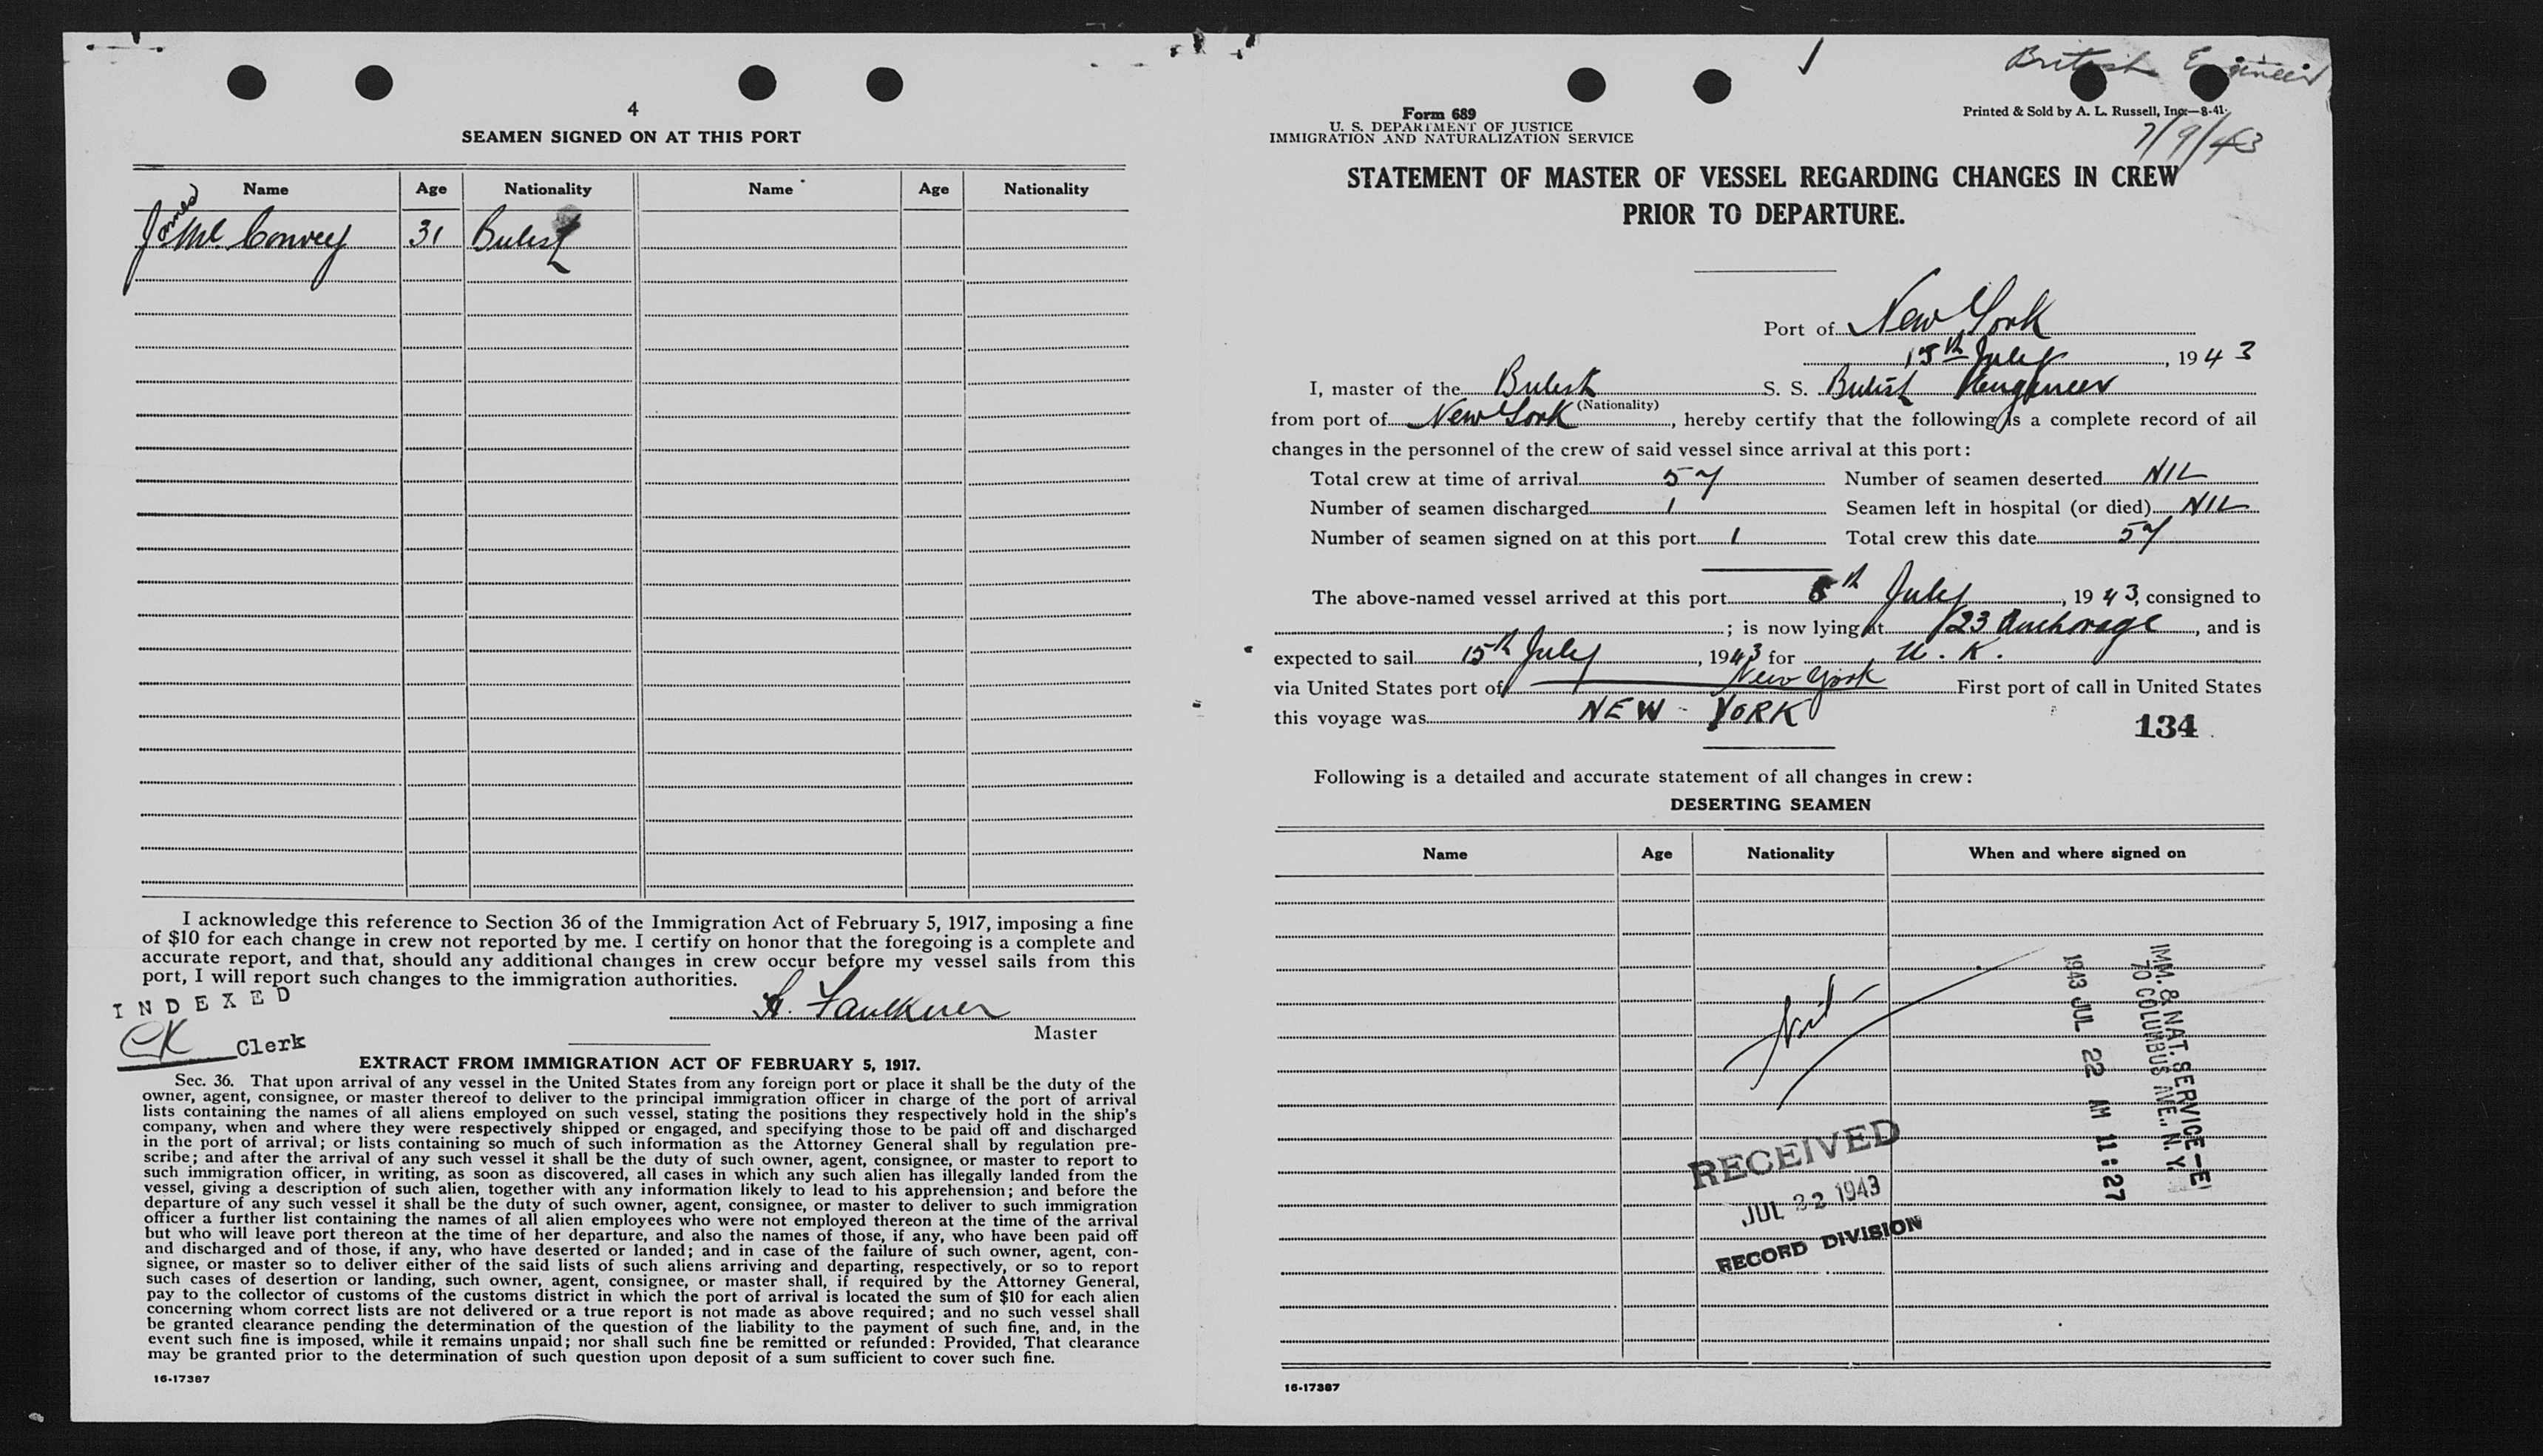 4
SEAMEN SIGNED ON AT THIS PORT
Name Age Nationality Name Age Nationality
James McConvey 31 British
I acknowledge this reference to Section 36 of the Immigration Act of February 5, 1917, imposing a fine
of $10 for each change in crew not reported by me. I certify on honor that the foregoing is a complete and
accurate report, and that, should any additional changes in crew occur before my vessel sails from this
port, I will report such changes to the immigration authorities.
INDEXED
A. Faulkner
Master
CK Clerk
EXTRACT FROM IMMIGRATION ACT OF FEBRUARY 5, 1917.
Sec. 36. That upon arrival of any vessel in the United States from any foreign port or place it shall be the duty of the
owner, agent, consignee, or master thereof to deliver to the principal immigration officer in charge of the port of arrival
lists containing the names of all aliens employed on such vessel, stating the positions they respectively hold in the ship's
company, when and where they were respectively shipped or engaged, and specifying those to be paid off and discharged
in the port of arrival; or lists containing so much of such information as the Attorney General shall by regulation pre-
scribe; and after the arrival of any such vessel it shall be the duty of such owner, agent, consignee, or master to report to
such immigration officer, in writing, as soon as discovered, all cases in which any such alien has illegally landed from the
vessel, giving a description of such alien, together with any information likely to lead to his apprehension; and before the
departure of any such vessel it shall be the duty of such owner, agent, consignee, or master to deliver to such immigration
officer a further list containing the names of all alien employees who were not employed thereon at the time of the arrival
but who will leave port thereon at the time of her departure, and also the names of those, if any, who have been paid off
and discharged and of those, if any, who have deserted or landed; and in case of the failure of such owner, agent, con-
signee, or master so to deliver either of the said lists of such aliens arriving and departing, respectively, or so to report
such cases of desertion or landing, such owner, agent, consignee, or master shall, if required by the Attorney General,
pay to the collector of customs of the customs district in which the port of arrival is located the sum of $10 for each alien
concerning whom correct lists are not delivered or a true report is not made as above required; and no such vessel shall
be granted clearance pending the determination of the question of the liability to the payment of such fine, and, in the
event such fine is imposed, while it remains unpaid; nor shall such fine be remitted or refunded: Provided, That clearance
may be granted prior to the determination of such question upon deposit of a sum sufficient to cover such fine.
16-17387
British Engineer
Form 689
U. S. DEPARTMENT OF JUSTICE
IMMIGRATION AND NATURALIZATION SERVICE
Printed & Sold by A. L. Russell, Inc.—8-41
7/9/43
STATEMENT OF MASTER OF VESSEL REGARDING CHANGES IN CREW
PRIOR TO DEPARTURE.
Port of New York
15th July, 1943
I, master of the British S. S. British Engineer
(Nationality)
from port of New York, hereby certify that the following is a complete record of all
changes in the personnel of the crew of said vessel since arrival at this port:
Total crew at time of arrival 57 Number of seamen deserted NIL
Number of seamen discharged 1 Seamen left in hospital (or died) NIL
Number of seamen signed on at this port 1 Total crew this date 57
The above-named vessel arrived at this port 8th July, 1943, consigned to
; is now lying at 23 Anchorage, and is
expected to sail 15th July, 1943 for U.K.
via United States port of New York First port of call in United States
this voyage was NEW - YORK
134
Following is a detailed and accurate statement of all changes in crew:
DESERTING SEAMEN
Name Age Nationality When and where signed on
IMM. & NAT. SERVICE-E
70 COLUMBUS AVE., N.Y.
1943 JUL 22 AM 11:27
RECEIVED
JUL 22 1943
RECORD DIVISION
16-17387